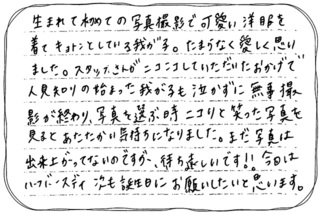 生まれて初めての写真撮影で可愛い洋服を
着てキョトンとしている我が子。たまらなく愛しく思い
ました。スタッフさんがニコニコしていただいたおかげで
人見知りの始まった我が子も泣かずに無事撮
影が終わり、写真を選ぶ時ニコリと笑った写真を
見るとあたたかい気持ちになりました。まだ写真は
出来上がってないのですが、待ち遠しいです!!今日は
ハーフバースディ 次も誕生日にお願いしたいと思います。